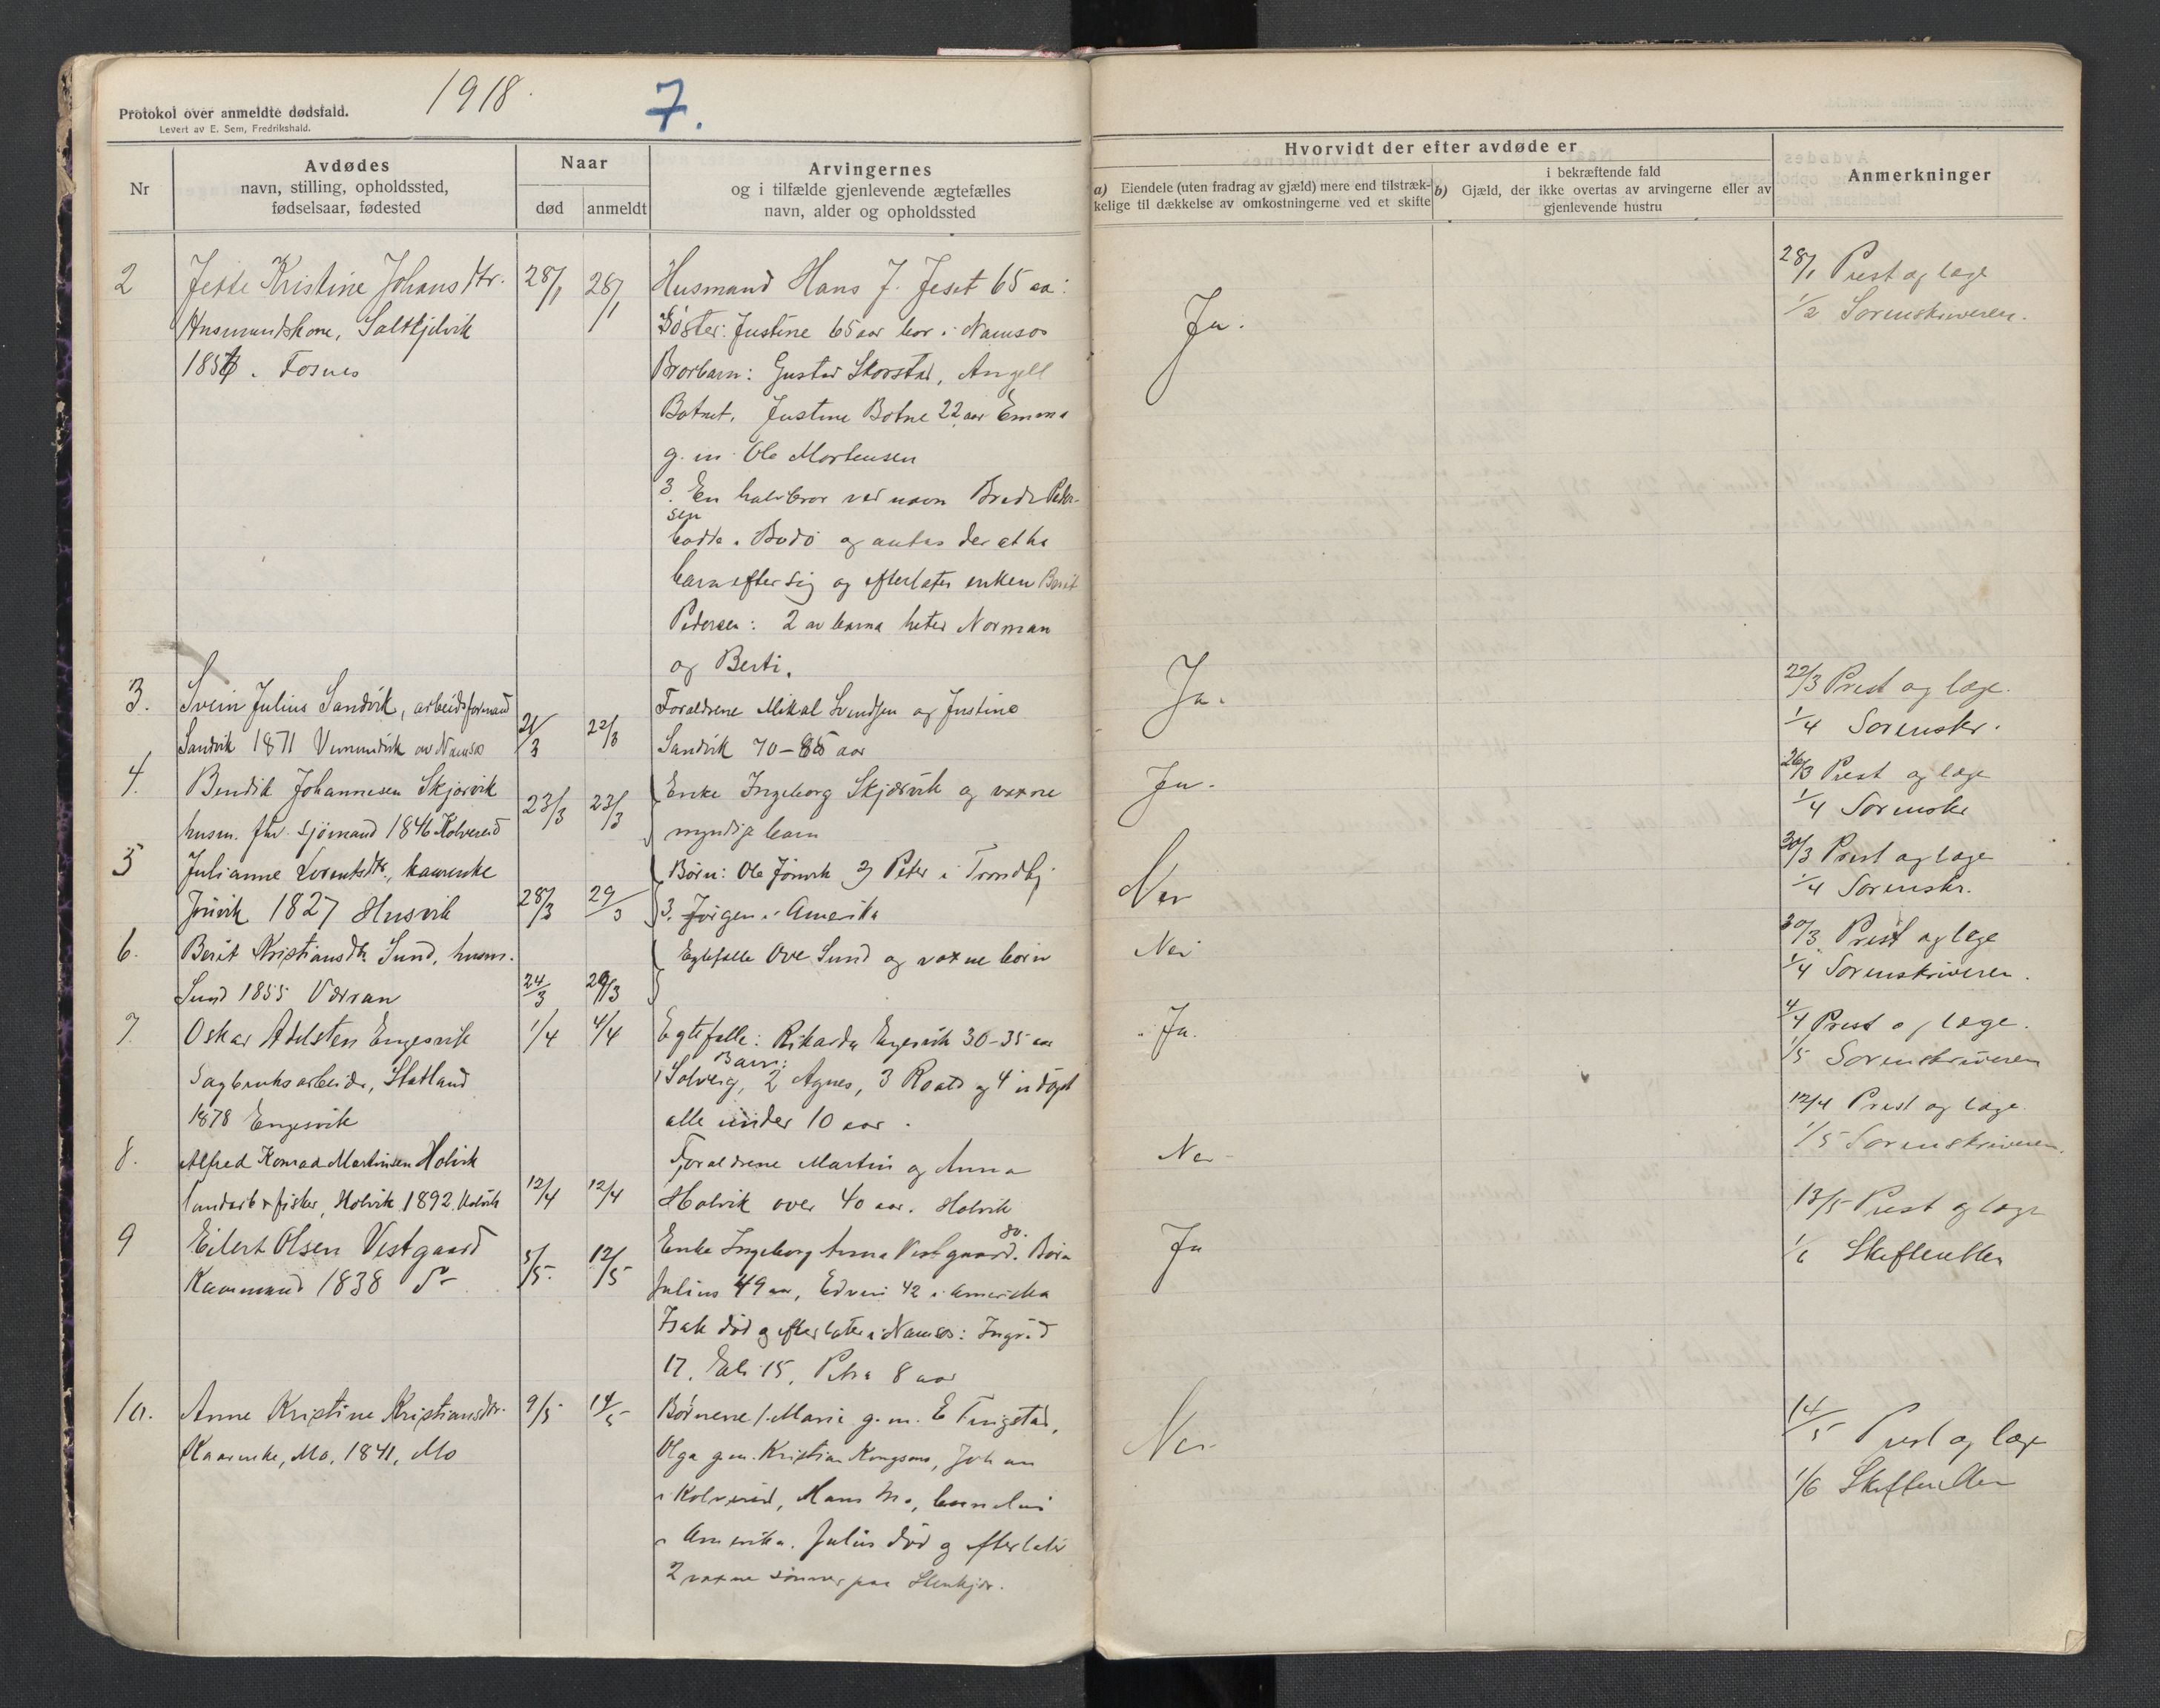 1918.
7.
Protokol over anmeldte dødsfald.
Levert av E. Sem, Fredrikshald.
Nr
Avdødes
navn, stilling, opholdssted,
fødselsaar, fødested
Naar
død
anmeldt
Arvingernes
og i tilfælde gjenlevende ægtefælles
navn, alder og opholdssted
Hvorvidt der efter avdøde er
a) Eiendele (uten fradrag av gjæld) mere end tilstræk-
kelige til dækkelse av omkostningerne ved et skifte
i bekræftende fald
b) Gjæld, der ikke overtas av arvingerne eller av
gjenlevende hustru
Anmerkninger
2 Kristine Johansdtr. 28/1 28/1 Husmand Hans J. Jeset 65 aa: Ja. 28/1 Prest og læge
Husmandskone, Saltkjelvik Søster: Justine 65 aar bor i Namsos 1/2 Sorenskriveren.
Fosnes Brorbarn: Gustav Skorstad, Angell
Botnet, Justine Botne 22 aar Emma
g. m. Ole Mortensen
3. En halvbror ved navn Peder-
sen
bodde i Bodö og antas der at ha
barn efter sig og efterlater enken Berit
Pedersen: 2 av barna heter Norman
og Berti.
3. Svein Julius Sandvik, arbeidsformand 21/3 22/3 Foraldrene Mikal Svendsen og Justine Ja. 22/3 Prest og læge.
Sandvik 1871 av Namsos Sandvik 70-85 aar 1/4 Sorenskr.
4. Bendik Johannesen Skjærvik 23/3 23/3 Enke Ingeborg Skjærvik og voxne Ja. 26/3 Prest og læge
husm. fhv. sjömand 1846 Kolvereid myndige barn 1/4 Sorenskr
5 Julianne Lorentsdtr., kaarenke 28/3 29/3 Børn: Ole Jönvik 2) Peter i Trondhj. Nei 30/3 Prest og læge
Jönvik 1827 Husvik 3. Jørgen i Amerika 1/4 Sorenskr.
6. Berit Kristiansdtr Sund, husm. 24/3 29/3 Egtefælle Ove Sund og voxne börn Nei 30/3 Prest og læge
Sund 1855 Værran 1/4 Sorenskriveren.
7. Oskar Adelsten Engesvik 1/4 4/4 Egtefælle: Rikarda Engesvik 30-35 aar Ja. 4/4 Prest og læge.
Sagbruksarbeider, Statland Barn: 1 Solveig, 2 Agnes, 3 Roald og 4 udöpt 1/5 Sorenskriveren
1878 Engesvik alle under 10 aar.
8. Alfred Konrad Martinsen Holvik 12/4 12/4 Foraldrene Martin og Anna Nei 12/4 Prest og læge.
landarb & fisker, Holvik 1892. Holvik Holvik over 40 aar. Holvik 1/5 Sorenskriveren.
9 Eilert Olsen Vestgaard 5/5. 12/5 Enke Ingeborg Anna Vestgaard 80. Börn Ja 13/5 Prest og læge
Kaarmand 1838 Julius 49 aar, Edvin 42 i Amerika 1/6 Skifteretten
Isak död og efterlater i Namsos: Ingrid
17, Eli 15, Petra 8 aar
10. Anne Kristine Kristiansdtr. 9/5 14/5 Børnene 1. Marie g. m. E Tingstad, Nei 14/5 Prest og læge
Kaarenke, Mo, 1841, Mo Olga g.m. Kristian Kongsmo, Johan 1/6 Skifteretten
i Kolvereid, Hans Mo, Cornelius
i Amerika. Julius död og efterlater
2 voxne sönner paa Stenkjær.